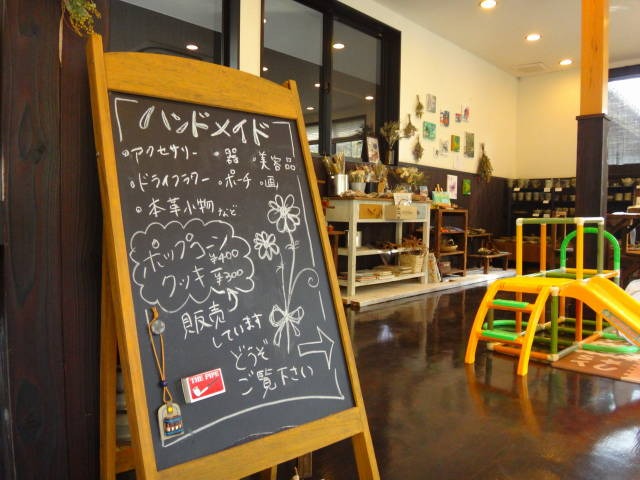 ハンドメイド
・アクセサリー ・器 ・美容品
・ドライフラワー ・ポーチ ・画
・本革小物 など
ポップコーン
¥400
クッキー
¥300
販売
しています
どうぞ
ご覧下さい
THE PIPE